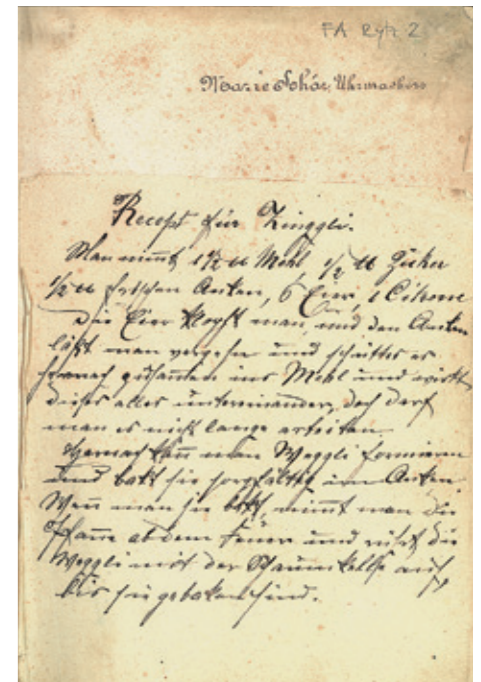 FA Ryh 2
Marie Schär, Uhrmachers
Recept für Zinggli.
Man nimmt 1½ ℔ Mehl, ½ ℔ Zucker
½ ℔ frischen Anken, 6 Eier, 1 Citrone
Die Eier klopft man, und den Anken
läßt man vergehn und schüttet es
hernach zusammen ins Mehl und wirkt
dieses alles untereinander, doch darf
man es nicht lange arbeiten.
Hernach kann man Weggli formieren
und bakt sie sorgfältig im Anken
Wenn man sie bakt, nimmt man die
Pfanne ab dem Feuer und rührt die
Weggli mit der Schaumkelle auf
bis sie gebaken sind.